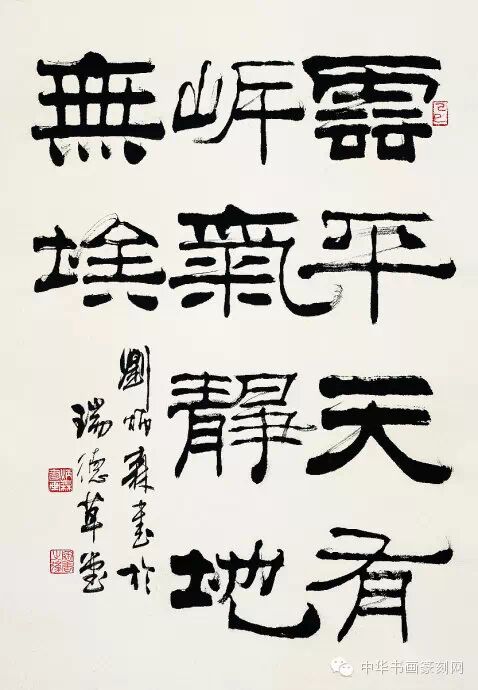 雲平天有
岸氣靜地
無埃
劉炳森書於
瑞德草堂
中华书画篆刻网